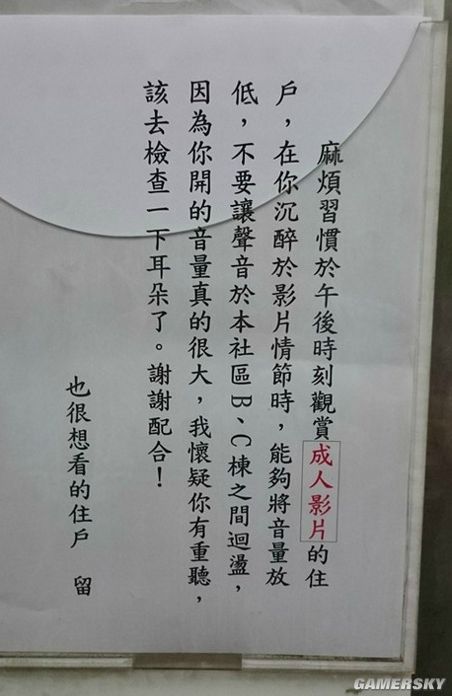 麻煩習慣於午後時刻觀賞成人影片的住
戶，在你沉醉於影片情節時，能夠將音量放
低，不要讓聲音於本社區B、C棟之間迴盪，
因為你開的音量真的很大，我懷疑你有重聽，
該去檢查一下耳朵了。謝謝配合！
也很想看的住戶　留
GAMERSKY